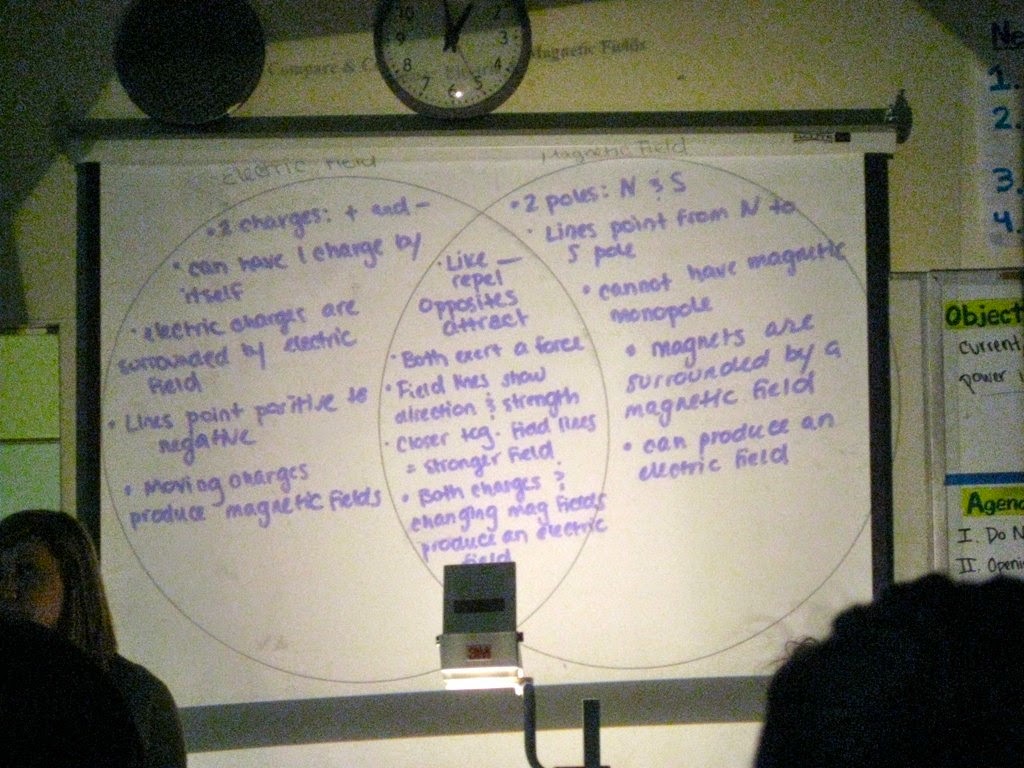 Compare & C
Magnetic Fields
10
2
9
3
8
4
7
6
5
Ne
1.
2.
3.
4.
Electric Field
• 2 charges: + and -
• can have 1 charge by
itself
• electric charges are
surrounded by electric
field
• Lines point positive to
negative
• moving charges
produce magnetic fields
• Like —
repel
opposites
attract
• Both exert a force
• Field lines show
direction & strength
• Closer tog. field lines
= stronger field
• Both charges &
changing mag fields
produce an electric
field
Magnetic Field
• 2 poles: N & S
• Lines point from N to
S pole
• cannot have magnetic
monopole
• magnets are
surrounded by a
magnetic field
• can produce an
electric field
3M
Object
current
power
Agen
I. Do N
II. Openi